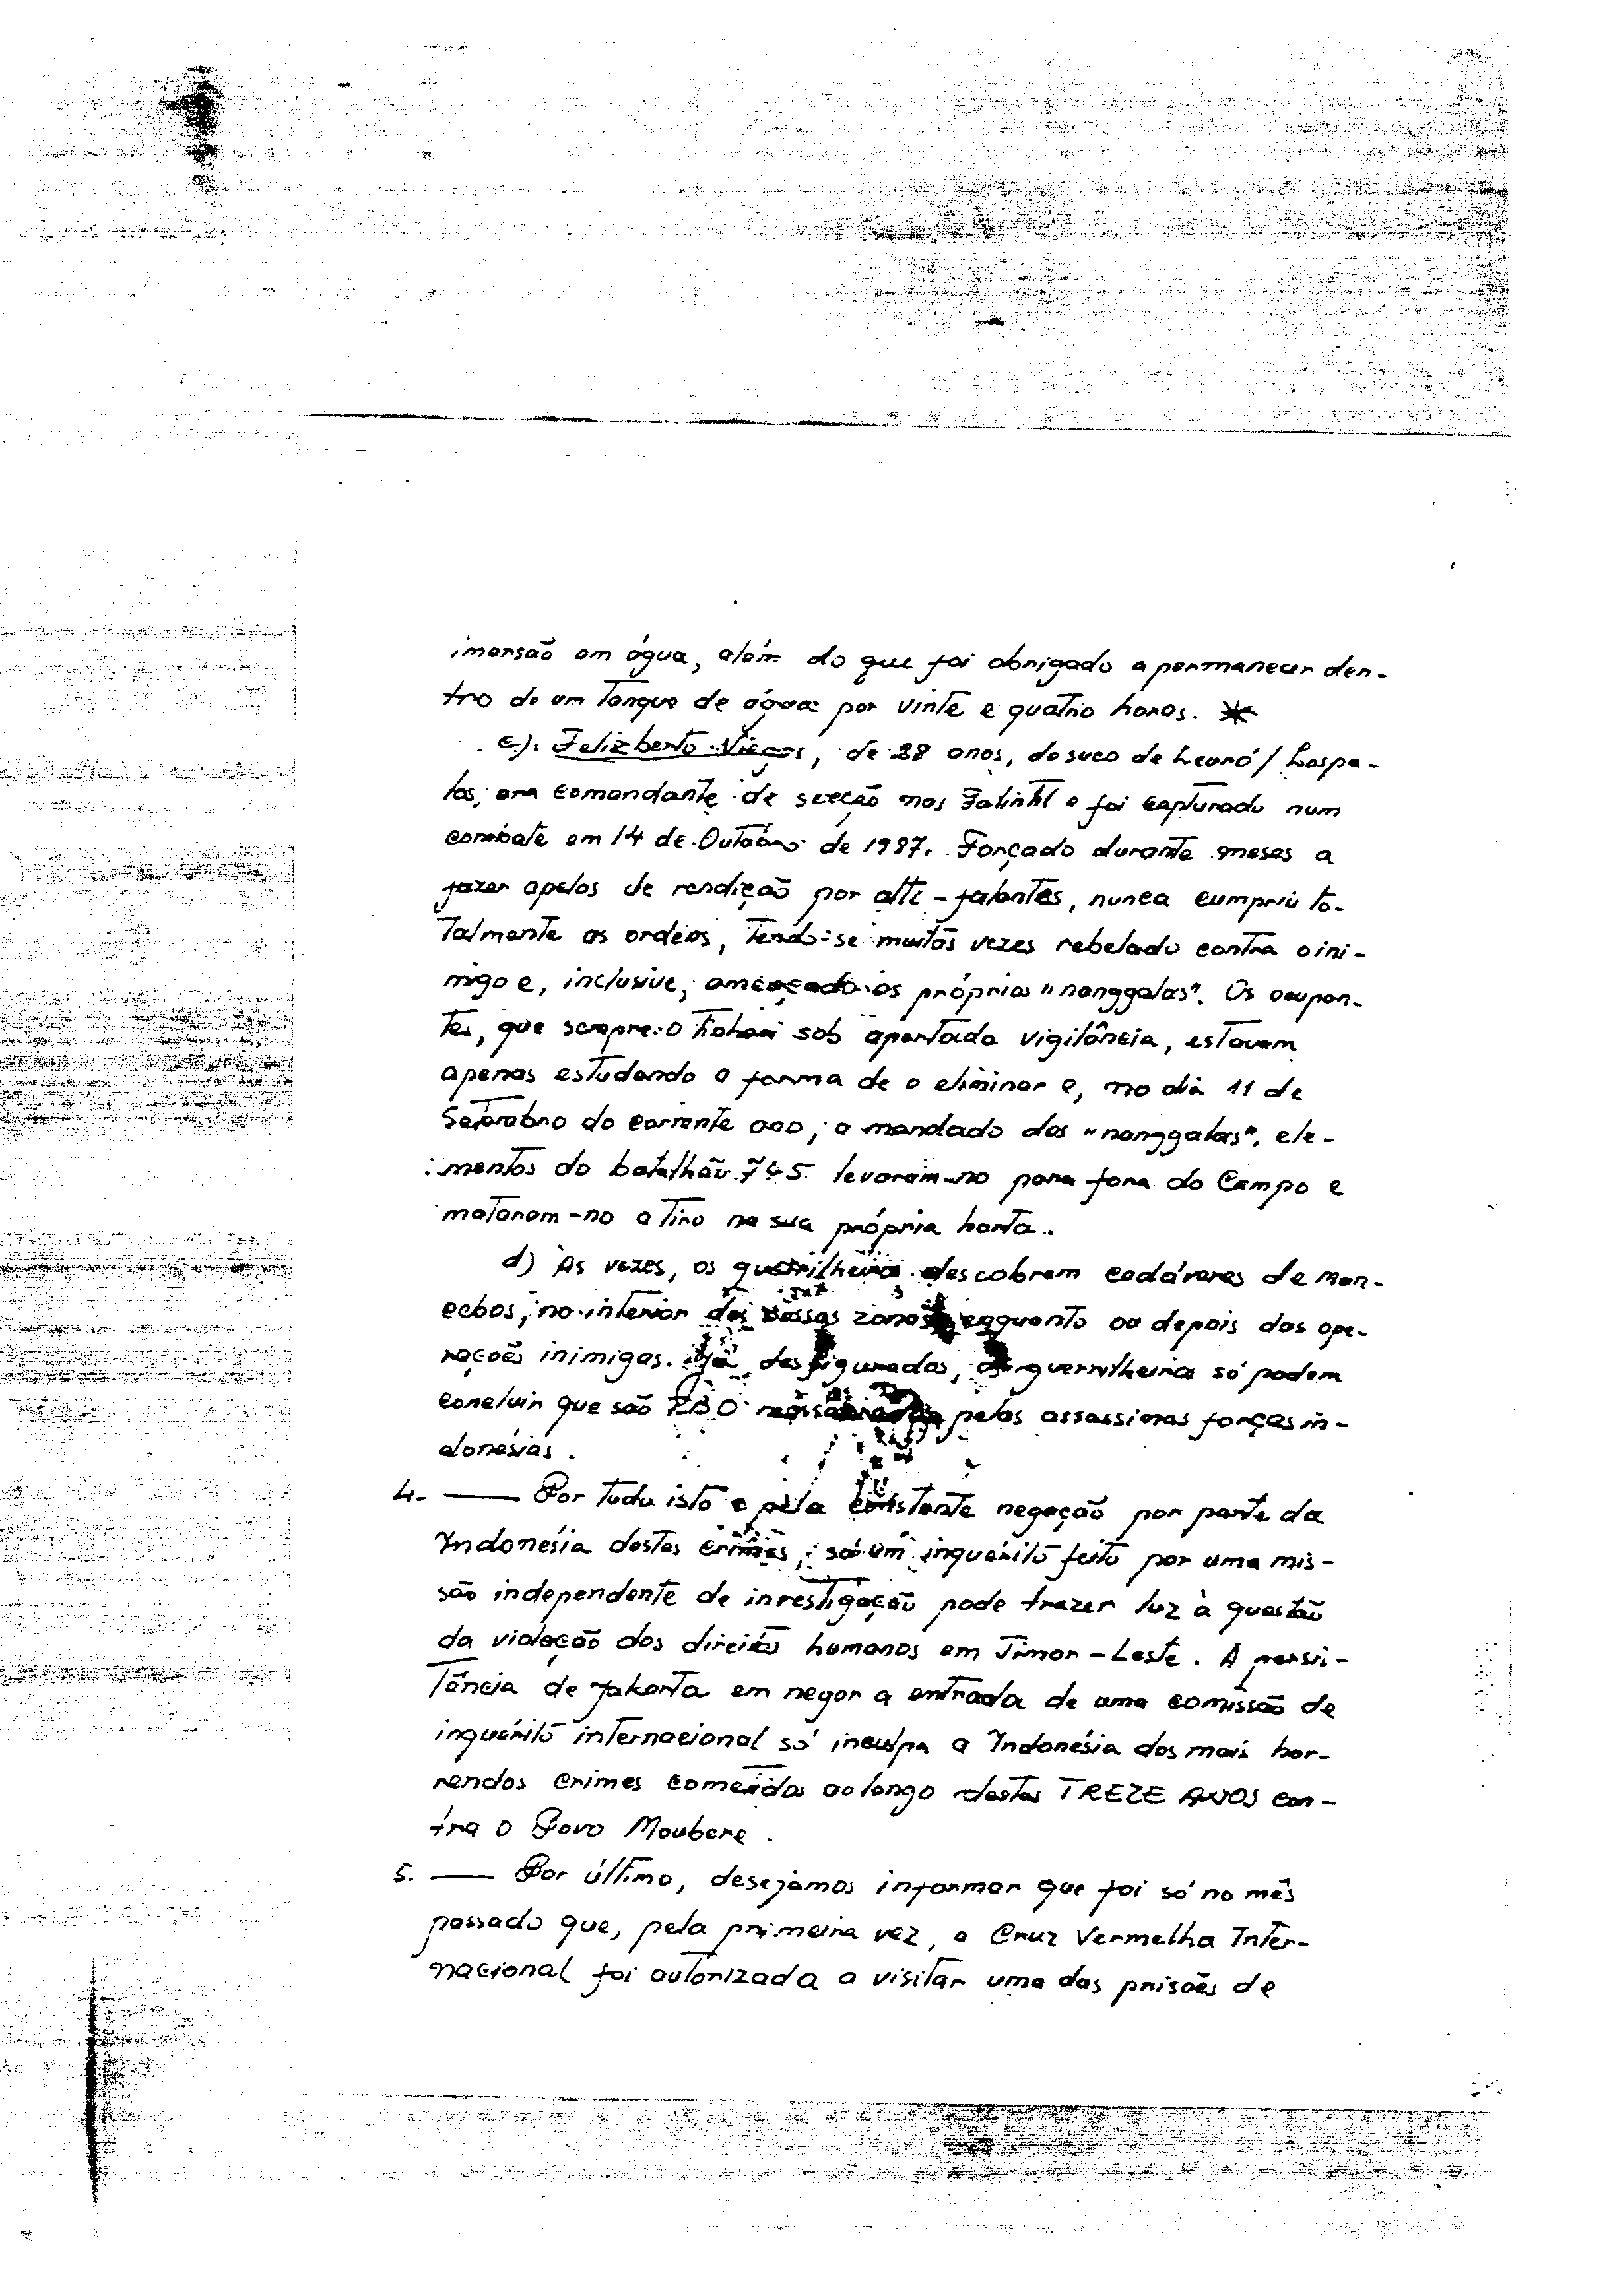 imersão em água, além do que foi obrigado a permanecer den-
tro de um tanque de água por vinte e quatro horas. *
c). Felizberto Viegas, de 28 anos, do suco de Leuró / Lospa-
los, era comandante de secção nas Falintil e foi capturado num
combate em 14 de Outubro de 1987. Forçado durante meses a
fazer apelos de rendição por alti-falantes, nunca cumpriu to-
talmente as ordens, tendo-se muitas vezes rebelado contra o ini-
migo e, inclusive, ameaçado os próprios "nanggalas". Os ocupan-
tes, que sempre o tinham sob apertada vigilância, estavam
apenas estudando a forma de o eliminar e, no dia 11 de
Setembro do corrente ano, a mandado dos "nanggalas", ele-
mentos do batalhão 745 levaram-no para fora do Campo e
mataram-no a tiro na sua própria horta.
d) Às vezes, os guerrilheiros descobrem cadáveres de man-
cebos, no interior das nossas zonas enquanto ou depois das ope-
rações inimigas. Já desfigurados, os guerrilheiros só podem
concluir que são TBO pelas assassinas forças in-
donésias.
4. — Por tudo isto e pela constante negação por parte da
Indonésia destes crimes, só um inquérito feito por uma mis-
são independente de investigação pode trazer luz à questão
da violação dos direitos humanos em Timor-Leste. A persis-
tência de Jakarta em negar a entrada de uma comissão de
inquérito internacional só inculpa a Indonésia dos mais hor-
rendos crimes cometidos ao longo destes TREZE ANOS con-
tra o Povo Maubere.
5. — Por último, desejamos informar que foi só no mês
passado que, pela primeira vez, a Cruz Vermelha Inter-
nacional foi autorizada a visitar uma das prisões de